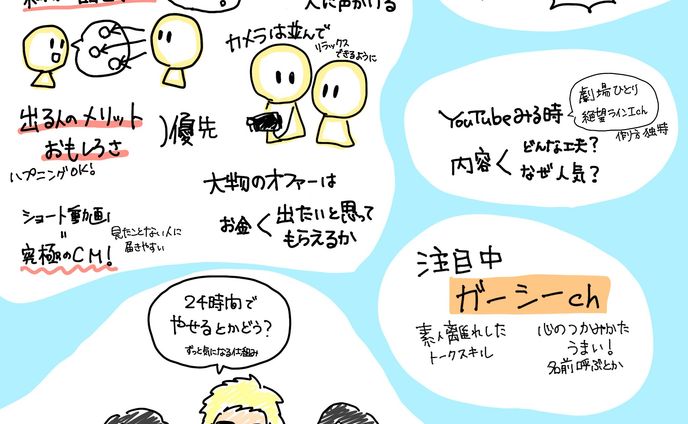 人に声かける
カメラは並んで
リラックス
できるように
出る人のメリット
おもしろさ
)優先
ハプニングOK!
大物のオファーは
お金く出たいと思って
もらえるか
ショート動画
=
究極のCM!
見たことない人に
届きやすい
YouTubeみる時
劇場ひとり
絶望ラインエch
作り方独特
内容く
どんな工夫?
なぜ人気?
注目中
ガーシーch
素人離れした
トークスキル
心のつかみかた
うまい!
名前呼ぶとか
24時間で
やせるとかどう?
ずっと気になる仕組み